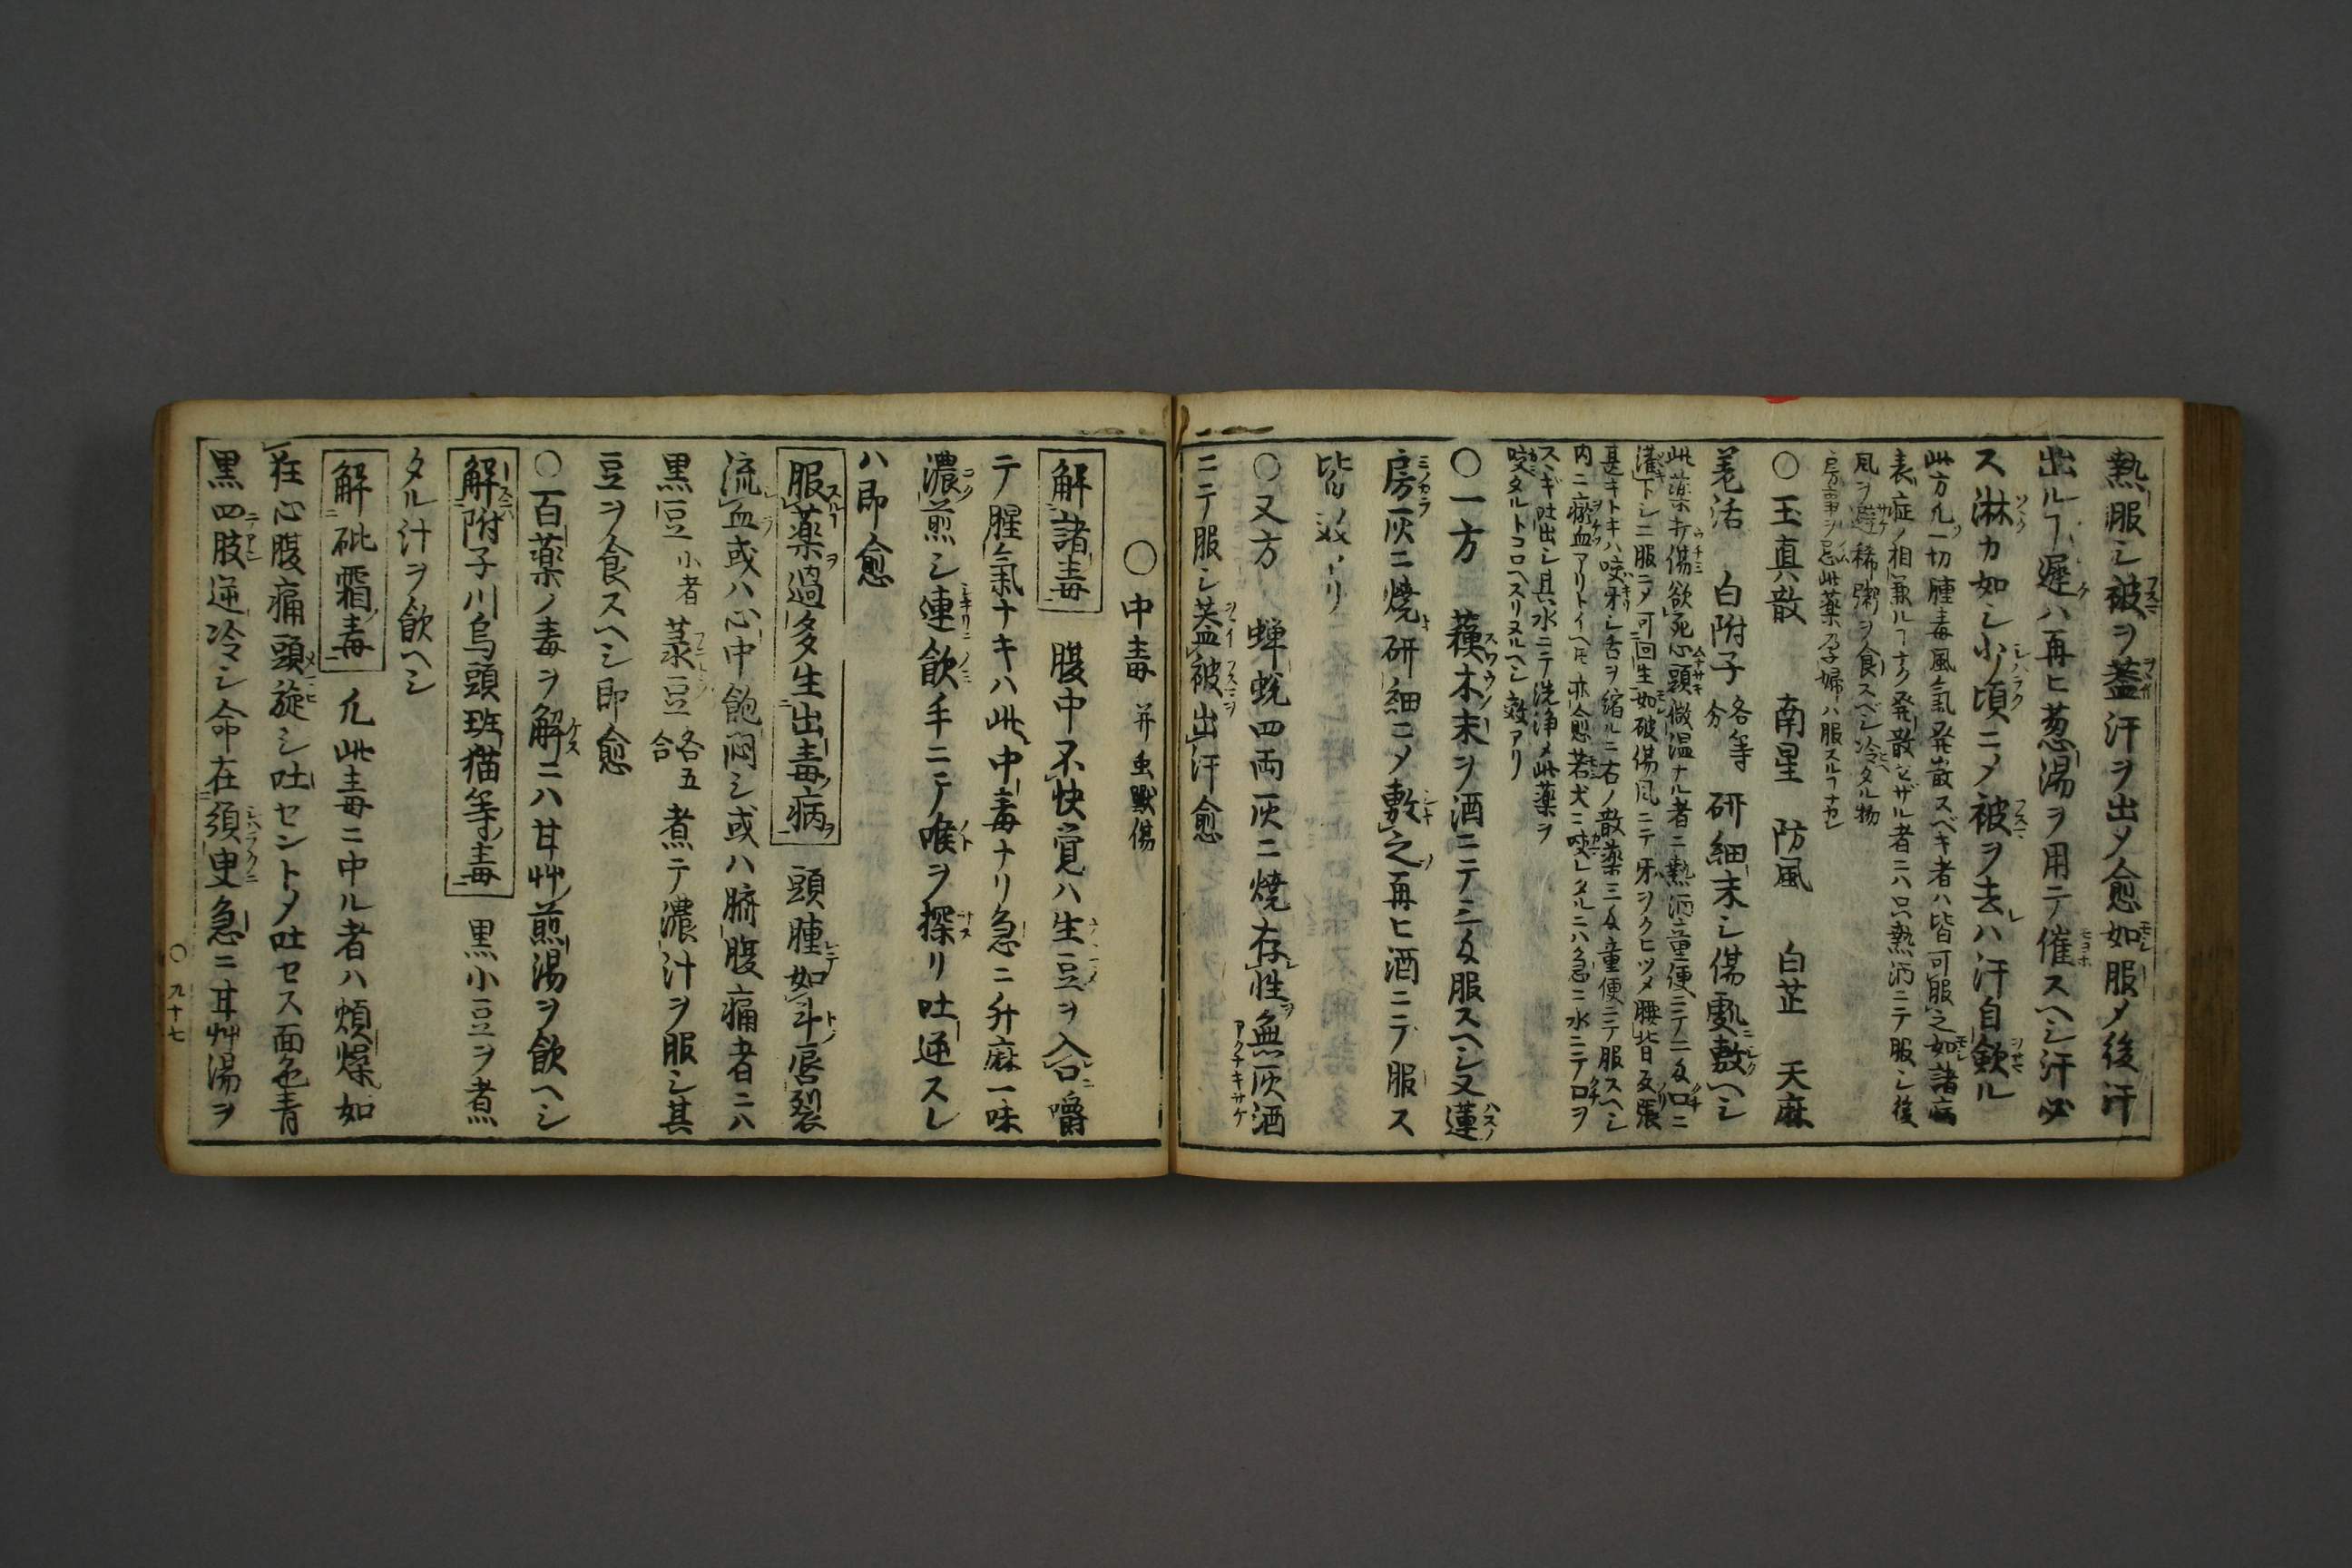 熱服シ被ヲ蓋汗ヲ出〆愈如服〆後汗
出ルヿ遅ハ再ヒ葱湯ヲ用テ催スヘシ汗必
ス淋カ如シ少頃ニ〆被ヲ去ハ汗自歛ル
此方凡一切腫毒風氣発散スベキ者ハ皆可服之如諸病
表症ノ相兼ルヿナク発散セザル者ニハ只熱酒ニテ服シ後
風ヲ避稀粥ヲ食スベシ冷タル物
房事ヲ忌此薬孕婦ハ服スルヿナカレ
○玉真散 南星 防風 白芷 天麻
羌活 白附子各等分 研細末シ傷処敷ヘシ
此薬打傷欲死心頭微温ナル者ニ熱酒童便ニテ二匁口ニ
灌下シニ服ニ〆可回生如破傷風ニテ牙ヲクヒツメ腰背反張
甚キトキハ咬牙シ舌ヲ縮ルニ右ノ散薬三匁童便ニテ服スヘシ
内ニ瘀血アリトイヘ𪜈亦愈若犬ニ咬レタルニハ急ニ水ニテ口ヲ
スヽギ吐出シ其水ニテ洗浄〆此薬ヲ
咬タルトコロヘスリヌルヘシ効アリ
○一方 蘓木末ヲ酒ニテ三匁服スヘシ又蓮
房灰ニ焼研細ニ〆敷之再ヒ酒ニテ服ス
皆効アリ
○又方 蝉蛻四両灰ニ焼存性無灰酒
ニテ服シ葢被出汗愈
○中毒 并虫獣傷
解諸毒 腹中不快覚ハ生豆ヲ入口嚼
テ腥氣ナキハ此中毒ナリ急ニ升麻一味
濃煎シ連飲手ニテ喉ヲ探リ吐逆スレ
ハ即愈
服薬過多生出毒病 頭腫如斗唇裂
流血或ハ心中飽悶シ或ハ臍腹痛者ニハ
黒豆小者 菉豆各五合 煮テ濃汁ヲ服シ其
豆ヲ食スヘシ即愈
○百薬ノ毒ヲ解ニハ甘艸煎湯ヲ飲ヘシ
解附子川烏頭班猫等毒 黒小豆ヲ煮
タル汁ヲ飲ヘシ
解砒霜毒 凡此毒ニ中ル者ハ煩燥如
狂心腹痛頭旋シ吐セント〆吐セス面色青
黒四肢逆冷シ命在須臾急ニ甘艸湯ヲ
○九十七